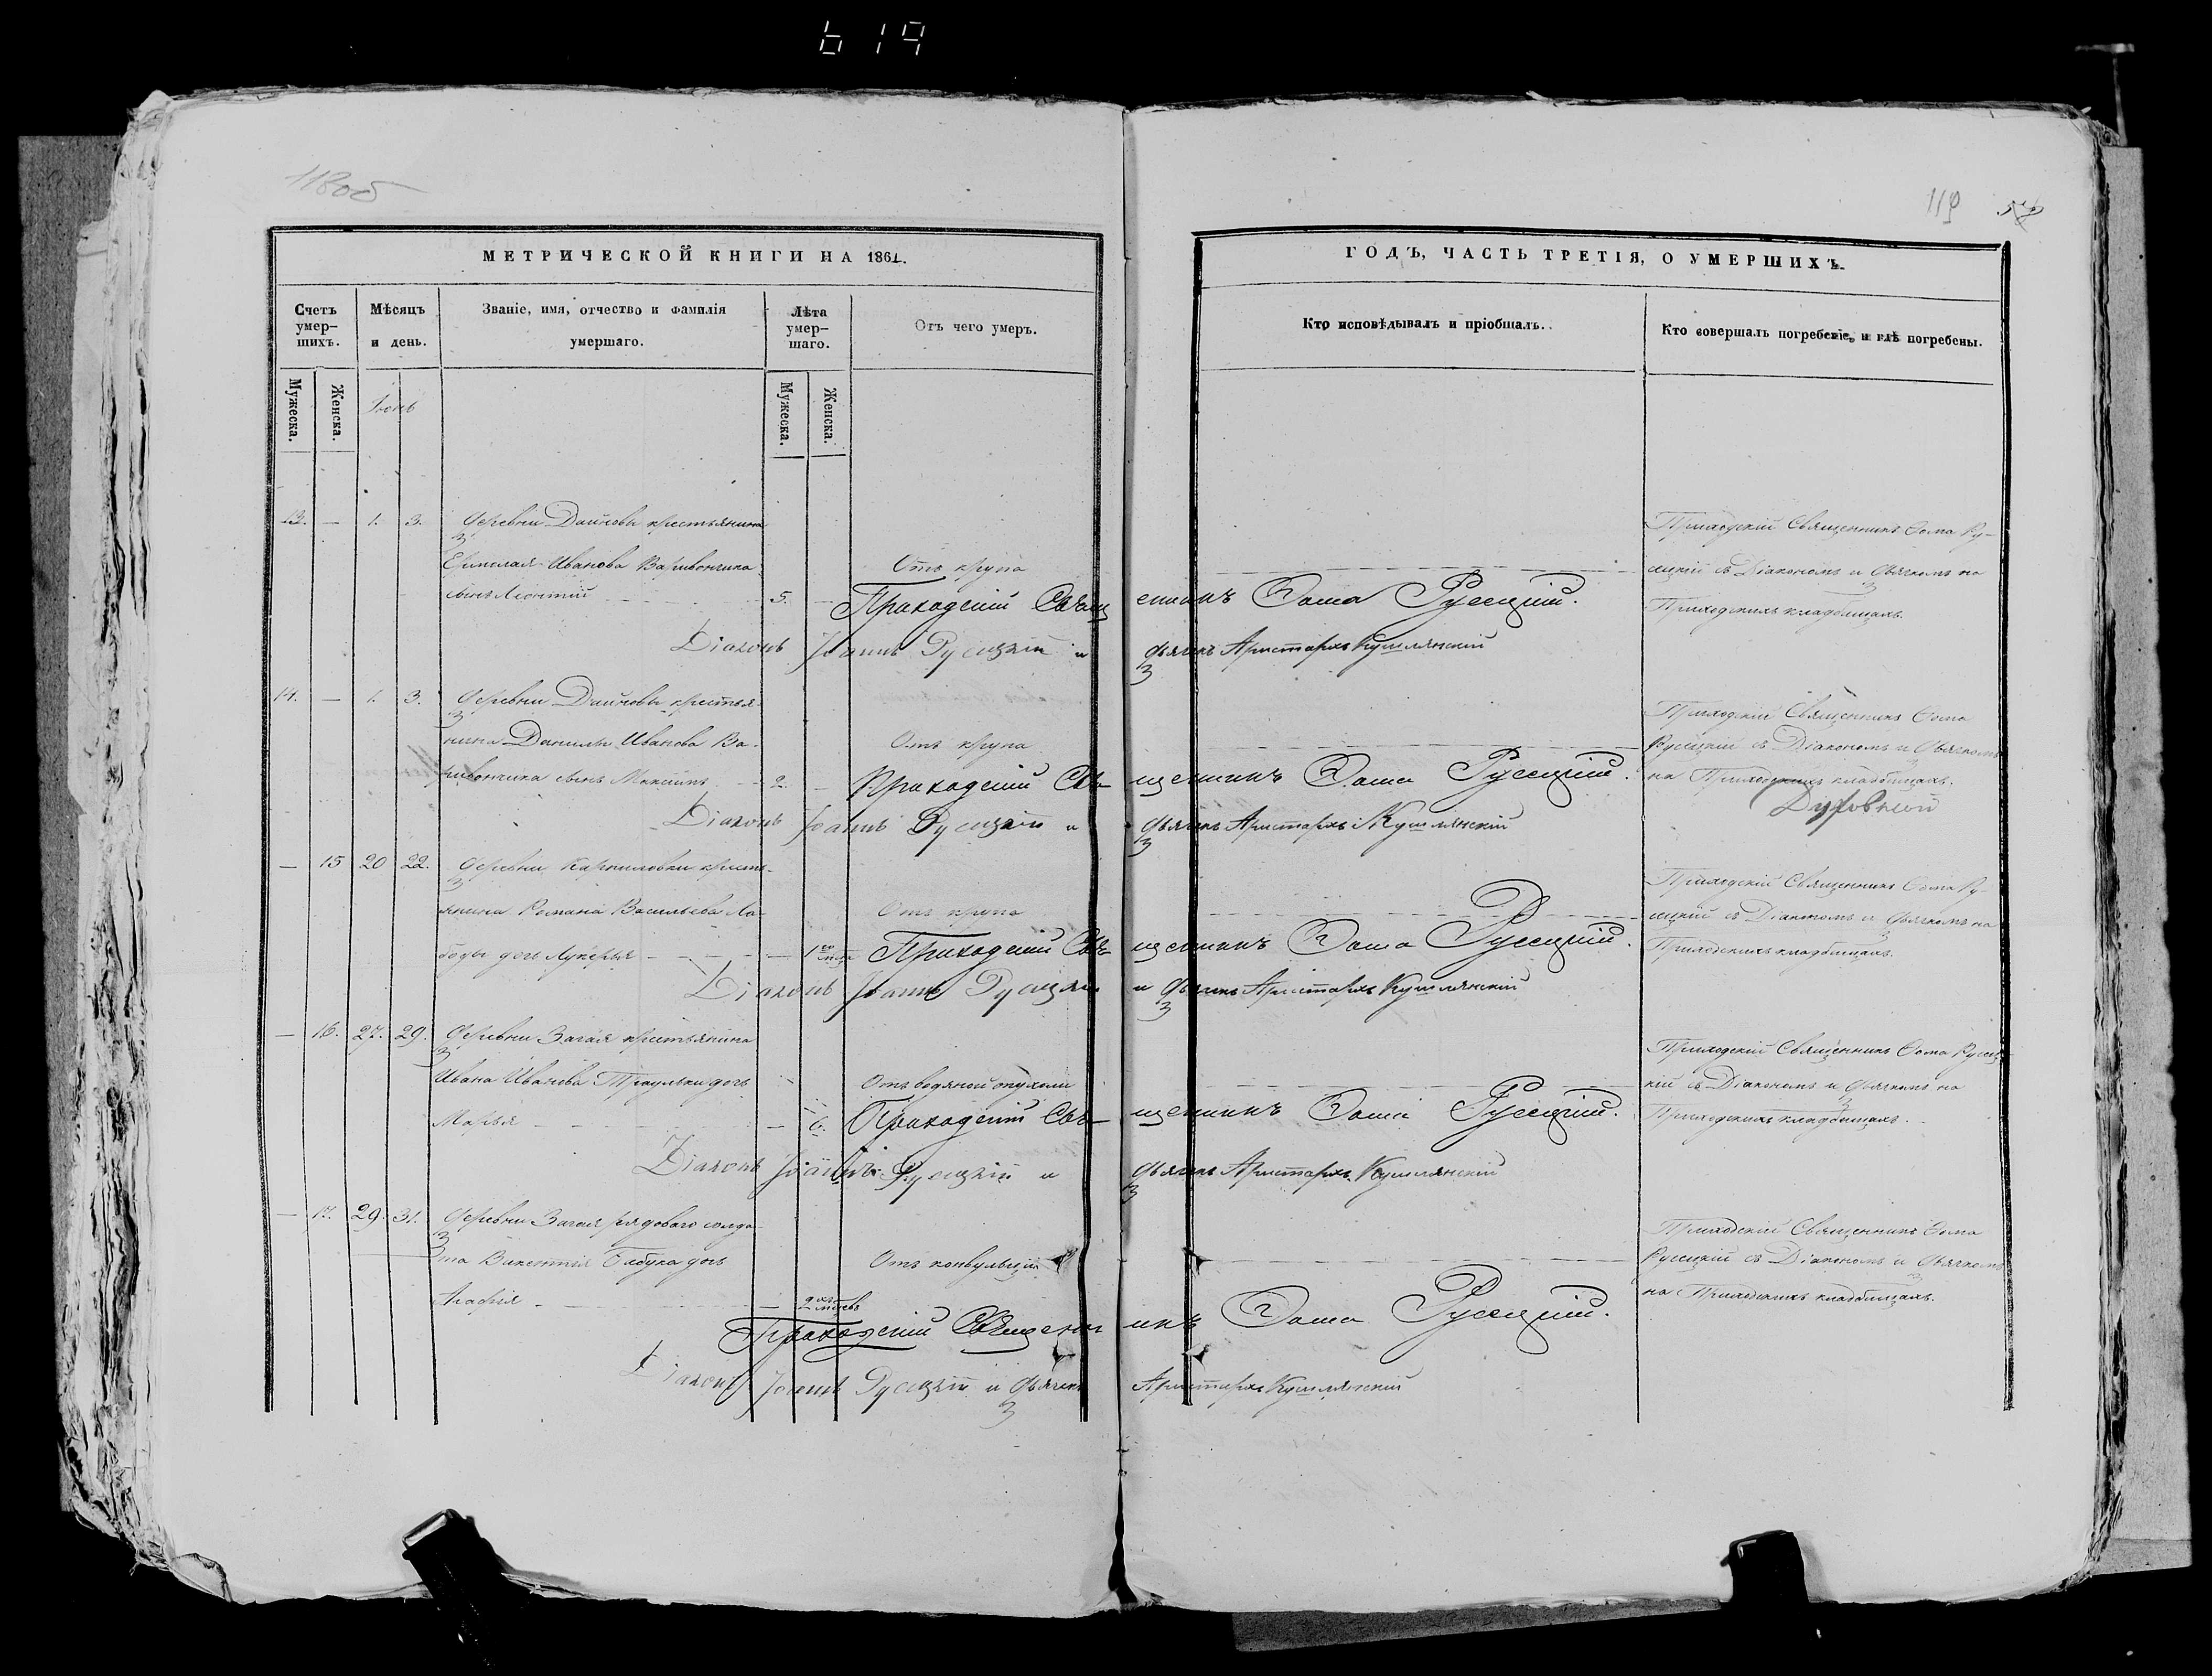 619
118об
119 57
МЕТРИЧЕСКОЙ КНИГИ НА 1861.
ГОДЪ, ЧАСТЬ ТРЕТІЯ, О УМЕРШИХЪ.
Счетъ умер-шихъ.
Мѣсяцъ и день.
Званіе, имя, отчество и фамилія умершаго.
Лѣта умер-шаго.
Отъ чего умеръ.
Кто исповѣдывалъ и пріобщалъ.
Кто совершалъ погребеніе, и гдѣ погребены.
Мужеска.
Женска.
Мужеска.
Женска.
13. — 1. 3. Деревни Дайновы крестьянина
Иванова Варивончика
сынъ Леонтій 5. —
Отъ крупа
Приходскій Священникъ Ѳома Ру-
сецкій съ Діакономъ и Дьячкомъ на
Приходскихъ кладбищахъ.
Приходскій Священникъ Ѳома Русецкій.
Діаконъ Іоаннъ Русецкій и Дьячекъ Аристархъ Кушлянскій
14. — 1. 3. Деревни Дайновы крестья-
нина Данилы Иванова Ва-
ривончика сынъ Максимъ 2. —
Отъ крупа
Приходскій Священникъ Ѳома
Русецкій съ Діакономъ и Дьячкомъ
на Приходскихъ кладбищахъ.
Приходскій Священникъ Ѳома Русецкій.
Діаконъ Іоаннъ Русецкій и Дьячекъ Аристархъ Кушлянскій
— 15 20 22. Деревни Карпиловки кресть-
янина Романа Васильева Ло-
боды дочь Лукерья — 1го
Отъ крупа
Приходскій Священникъ Ѳома Ру-
сецкій съ Діакономъ и Дьячкомъ на
Приходскихъ кладбищахъ.
Приходскій Священникъ Ѳома Русецкій.
Діаконъ Іоаннъ Русецкій и Дьячекъ Аристархъ Кушлянскій
— 16. 27. 29. Деревни Загая крестьянина
Ивана Иванова дочь
Марья — 6.
Отъ водяной опухоли
Приходскій Священникъ Ѳома Русец-
кій съ Діакономъ и Дьячкомъ на
Приходскихъ кладбищахъ.
Приходскій Священникъ Ѳома Русецкій.
Діаконъ Іоаннъ Русецкій и Дьячекъ Аристархъ Кушлянскій
— 17. 29. 31. Деревни Загая рядоваго солда-
та Викентія Бабука дочь
Агафія —
Отъ конвульсіи
Приходскій Священникъ Ѳома
Русецкій съ Діакономъ и Дьячкомъ
на Приходскихъ кладбищахъ.
Приходскій Священникъ Ѳома Русецкій.
Діаконъ Іоаннъ Русецкій и Дьячекъ Аристархъ Кушлянскій